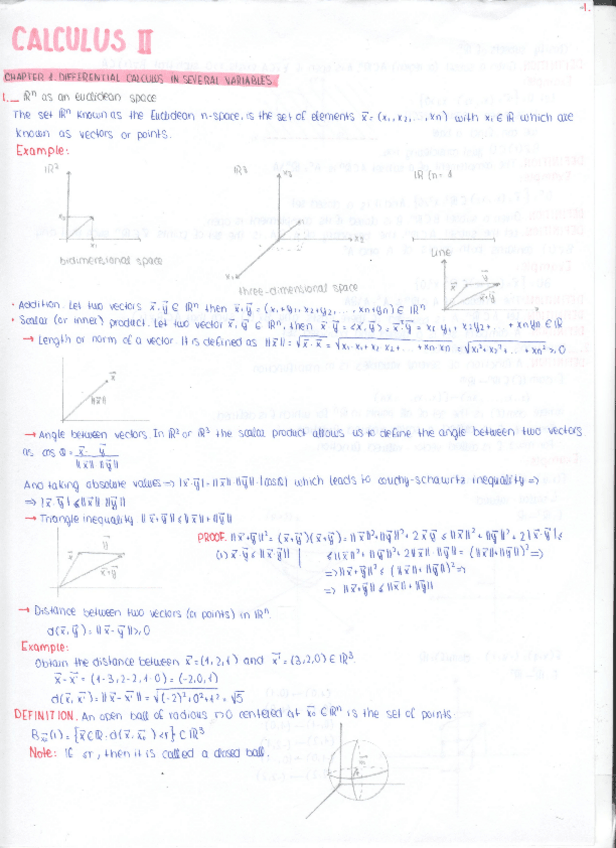 -1.
CALCULUS II
CHAPTER 1. DIFFERENTIAL CALCULUS IN SEVERAL VARIABLES.
1._ ℝⁿ as an euclidean space
The set ℝⁿ known as the Euclidean n-space, is the set of elements x⃗ = (x₁, x₂, ..., xn) with xᵢ ∈ ℝ which are
known as vectors or points.
Example:
ℝ² ℝ³ ℝ (n = 1
x₂ x₁ x₃ x₂ x₁
bidimensional space
three-dimensional space
Line
· Addition. Let two vectors x⃗, y⃗ ∈ ℝⁿ, then x⃗, y⃗ = (x₁+y₁, x₂+y₂, ..., xn+yn) ∈ ℝⁿ
· Scalar (or inner) product. Let two vector x⃗, y⃗ ∈ ℝⁿ, then x⃗ y⃗ = <x⃗, y⃗> = x⃗ᵀy⃗ = x₁ y₁ + x₂y₂ + ... + xn yn ∈ ℝ
→ Length or norm of a vector. It is defined as ||x⃗|| = √x⃗·x⃗ = √x₁·x₁+x₂ x₂+...+xn·xn = √x₁²+x₂²+...+xn² ≥ 0
x⃗
||x⃗||
→ Angle between vectors. In ℝ² or ℝ³ the scalar product allows us to define the angle between two vectors
as cos θ = x⃗ · y⃗ / ||x⃗|| ||y⃗||
And taking absolute values → |x⃗·y⃗| = ||x⃗|| ||y⃗|| |cos θ| which leads to couchy-schawrtz inequality =>
=> |x⃗·y⃗| ≤ ||x⃗|| ||y⃗||
→ Triangle inequality ||x⃗+y⃗|| ≤ ||x⃗||+||y⃗||
PROOF. ||x⃗+y⃗||² = (x⃗+y⃗)(x⃗+y⃗) = ||x⃗||²+||y⃗||²+2x⃗y⃗ ≤ ||x⃗||²+||y⃗||²+2|x⃗·y⃗| ≤
(1) x⃗·y⃗ ≤ ||x⃗|| ||y⃗|| ≤ ||x⃗||²+||y⃗||²+2||x⃗|| ||y⃗|| = (||x⃗||+||y⃗||)² =>
=> ||x⃗+y⃗||² ≤ (||x⃗||+||y⃗||)² =>
=> ||x⃗+y⃗|| ≤ ||x⃗||+||y⃗||
x⃗ y⃗ x⃗+y⃗
→ Distance between two vectors (or points) in ℝⁿ.
d(x⃗, y⃗) = ||x⃗-y⃗|| ≥ 0
Example:
Obtain the distance between x⃗ = (1,2,1) and x⃗' = (3,2,0) ∈ ℝ³.
x⃗-x⃗' = (1-3, 2-2, 1-0) = (-2,0,1)
d(x⃗, x⃗') = ||x⃗-x⃗'|| = √(-2)²+0²+1² = √5
DEFINITION. An open ball of radious r>0 centered at x⃗₀ ∈ ℝⁿ is the set of points.
Bx⃗₀(r) = {x⃗ ∈ ℝ · d(x⃗, x⃗₀) < r} ⊂ ℝ³
Note: If ≤r, then it is called a closed ball.